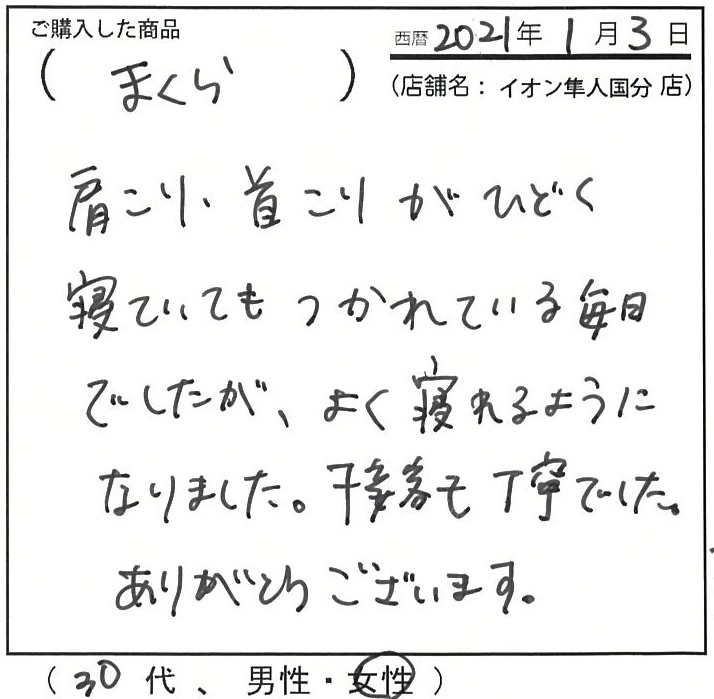 ご購入した商品
西暦 2021年 1月 3日
( まくら )
(店舗名: イオン隼人国分 店)
肩こり、首こりがひどく
寝ていてもつかれている毎日
でしたが、よく寝れるように
なりました。接客も丁寧でした。
ありがとうございます。
( 30 代 、 男性・女性 )